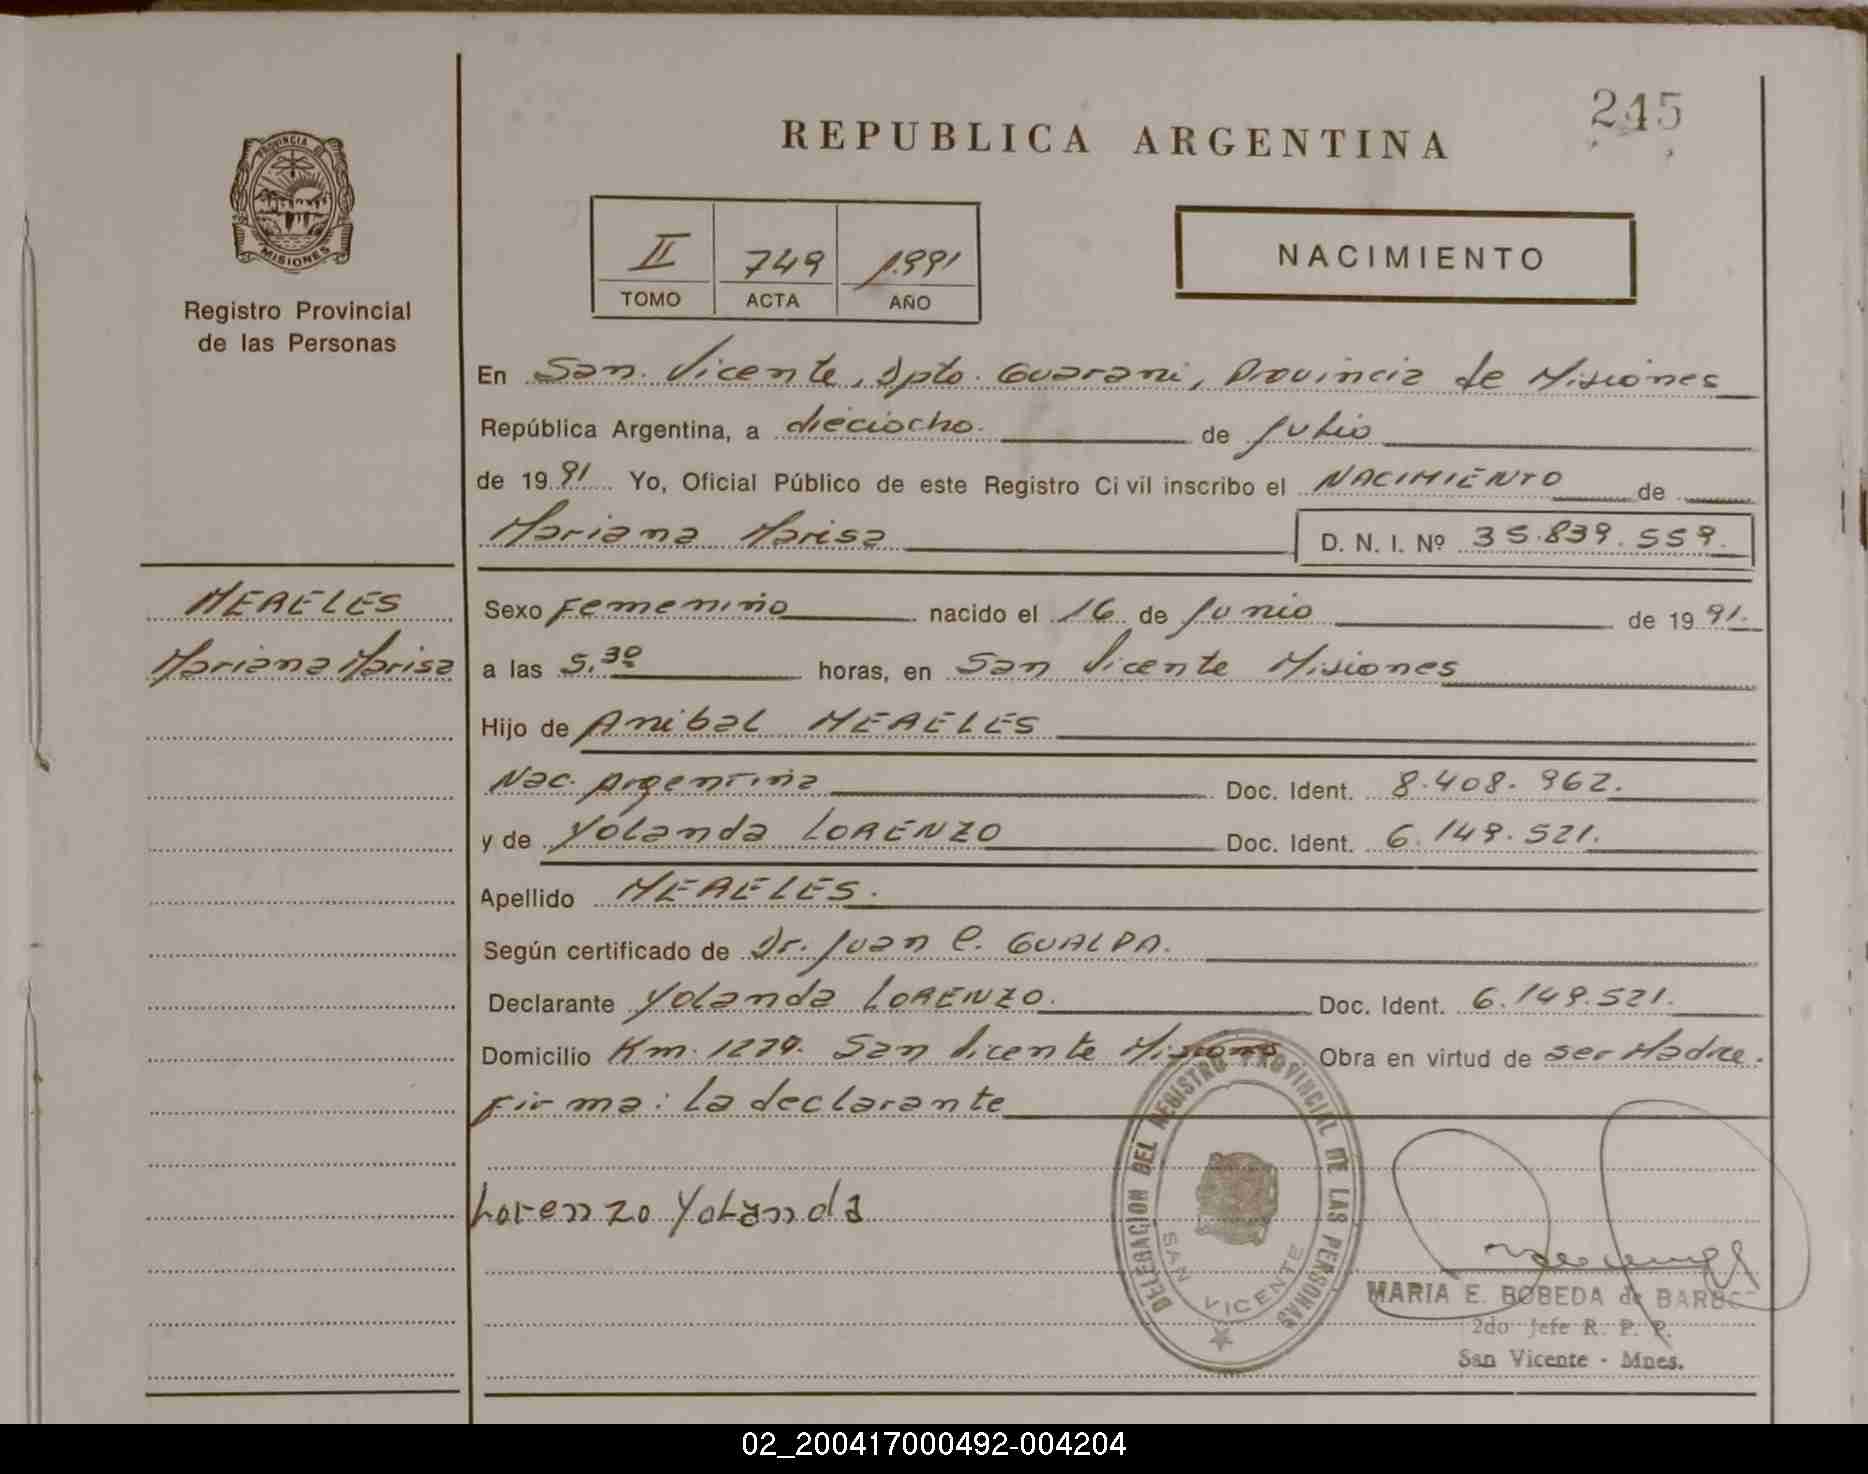 245
REPUBLICA ARGENTINA
PROVINCIA DE
MISIONES
Registro Provincial
de las Personas
II 749 1.991
TOMO ACTA AÑO
NACIMIENTO
En San Vicente, Dpto. Guarani, Provincia de Misiones
República Argentina, a dieciocho. de Julio
de 1991 Yo, Oficial Público de este Registro Civil inscribo el NACIMIENTO de
Mariana Marisa D. N. I. Nº 35.839.559.
MERELES
Mariana Marisa
Sexo Femenino nacido el 16 de Junio de 1991.
a las 5.30 horas, en San Vicente Misiones
Hijo de Anibal MERELES
Nac. Argentina Doc. Ident. 8.408.962.
y de Yolanda LORENZO Doc. Ident. 6.149.521.
Apellido MERELES.
Según certificado de Dr. Juan C. GUALDA.
Declarante Yolanda LORENZO. Doc. Ident. 6.149.521.
Domicilio Km. 1279. San Vicente Misiones Obra en virtud de ser Madre.
Firma: La declarante
Lorenzo Yolanda
DELEGACION DEL REGISTRO PROVINCIAL DE LAS PERSONAS
SAN VICENTE
MARIA E. BOBEDA de
2do Jefe R. P. P.
San Vicente - Mnes.
02_200417000492-004204